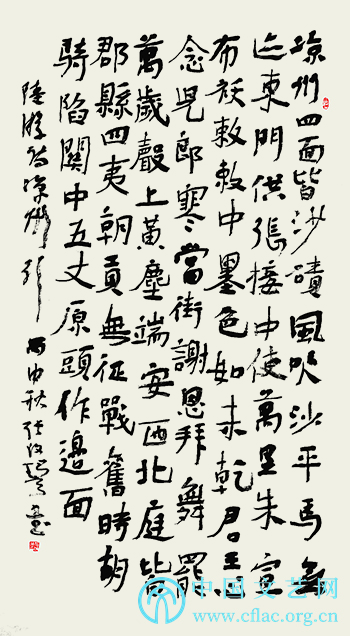 涼州四面皆沙磧風吹沙平馬無
迹東門供張接中使萬里朱宣
布襖敕敕中墨色如未乾君王心
念兒郎寒當街謝恩拜舞罷
萬歲聲上黃塵端安西北庭皆
郡縣四夷朝貢無征戰舊時胡
騎陷關中五丈原頭作邊面
陸游詩涼州行 丙申秋張改琴書
中国文艺网
www.cflac.org.cn